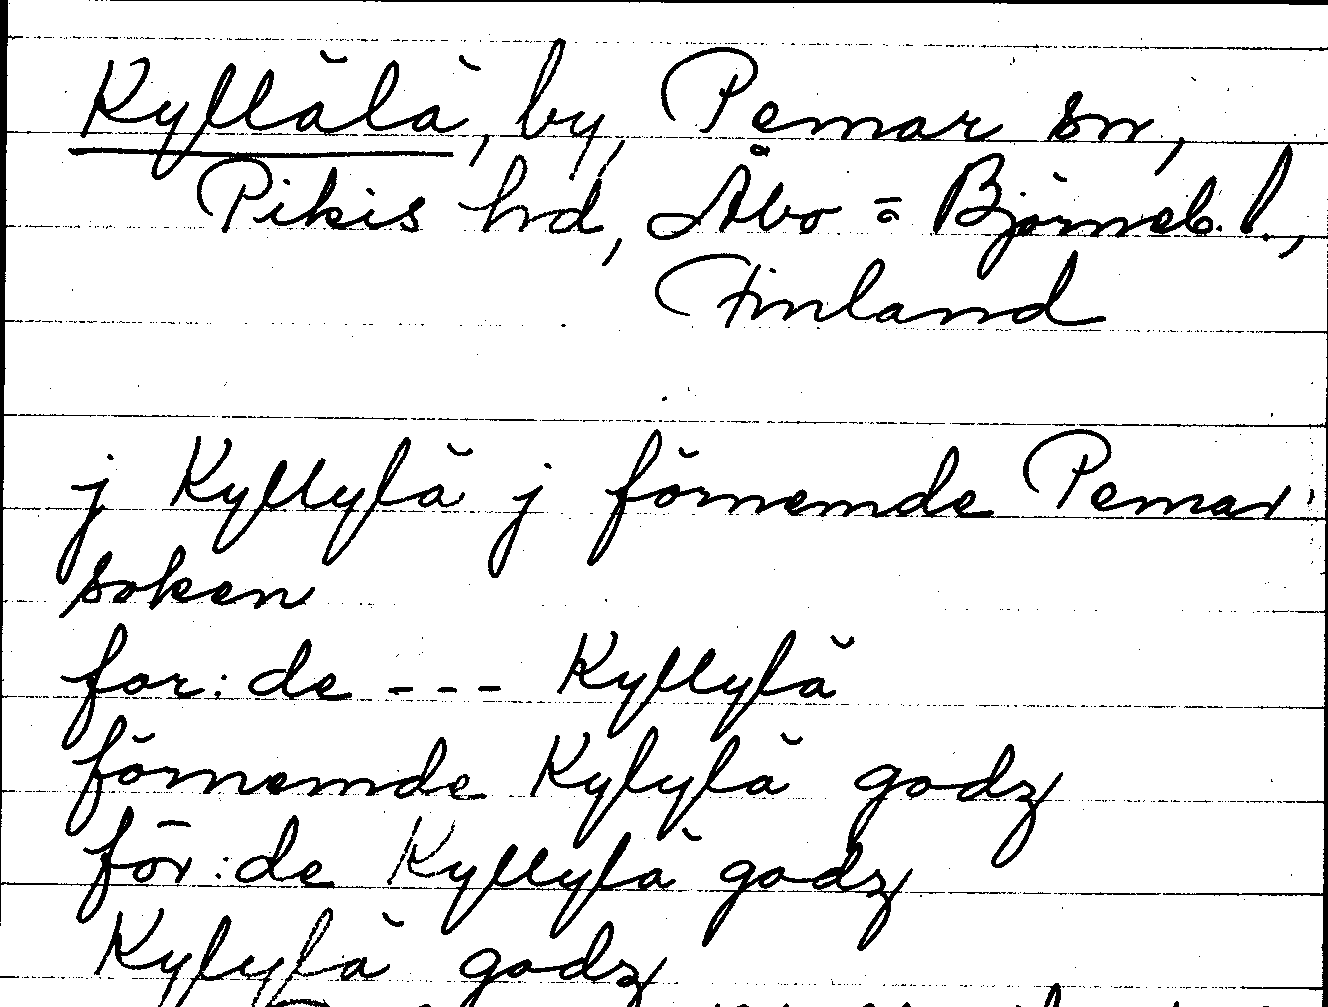 Kyllälä, by, Pemar sn,
Pikis hd, Åbo = Björneb. l.,
Finland
j Kyllylä j förnemde Pemar
soken
for:de --- Kyllylä
förnemde Kylylä godz
för:de Kyllylä godz
Kylylä godz